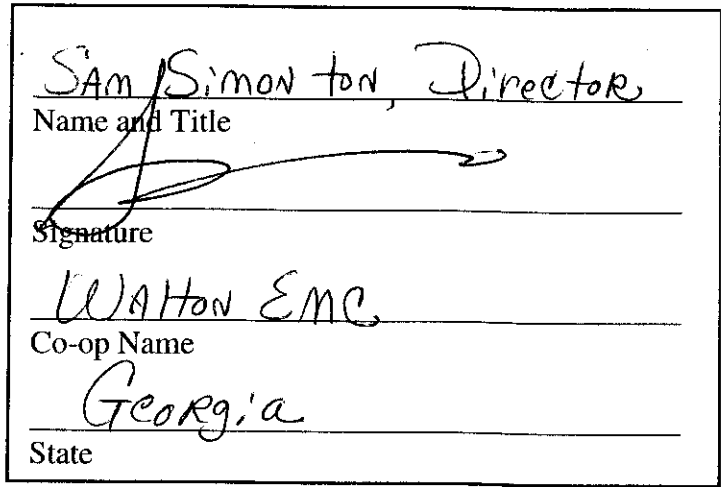 SAM SiMON toN, DirectoR
Name and Title
Signature
WAltoN EMC
Co-op Name
GeoRgia
State